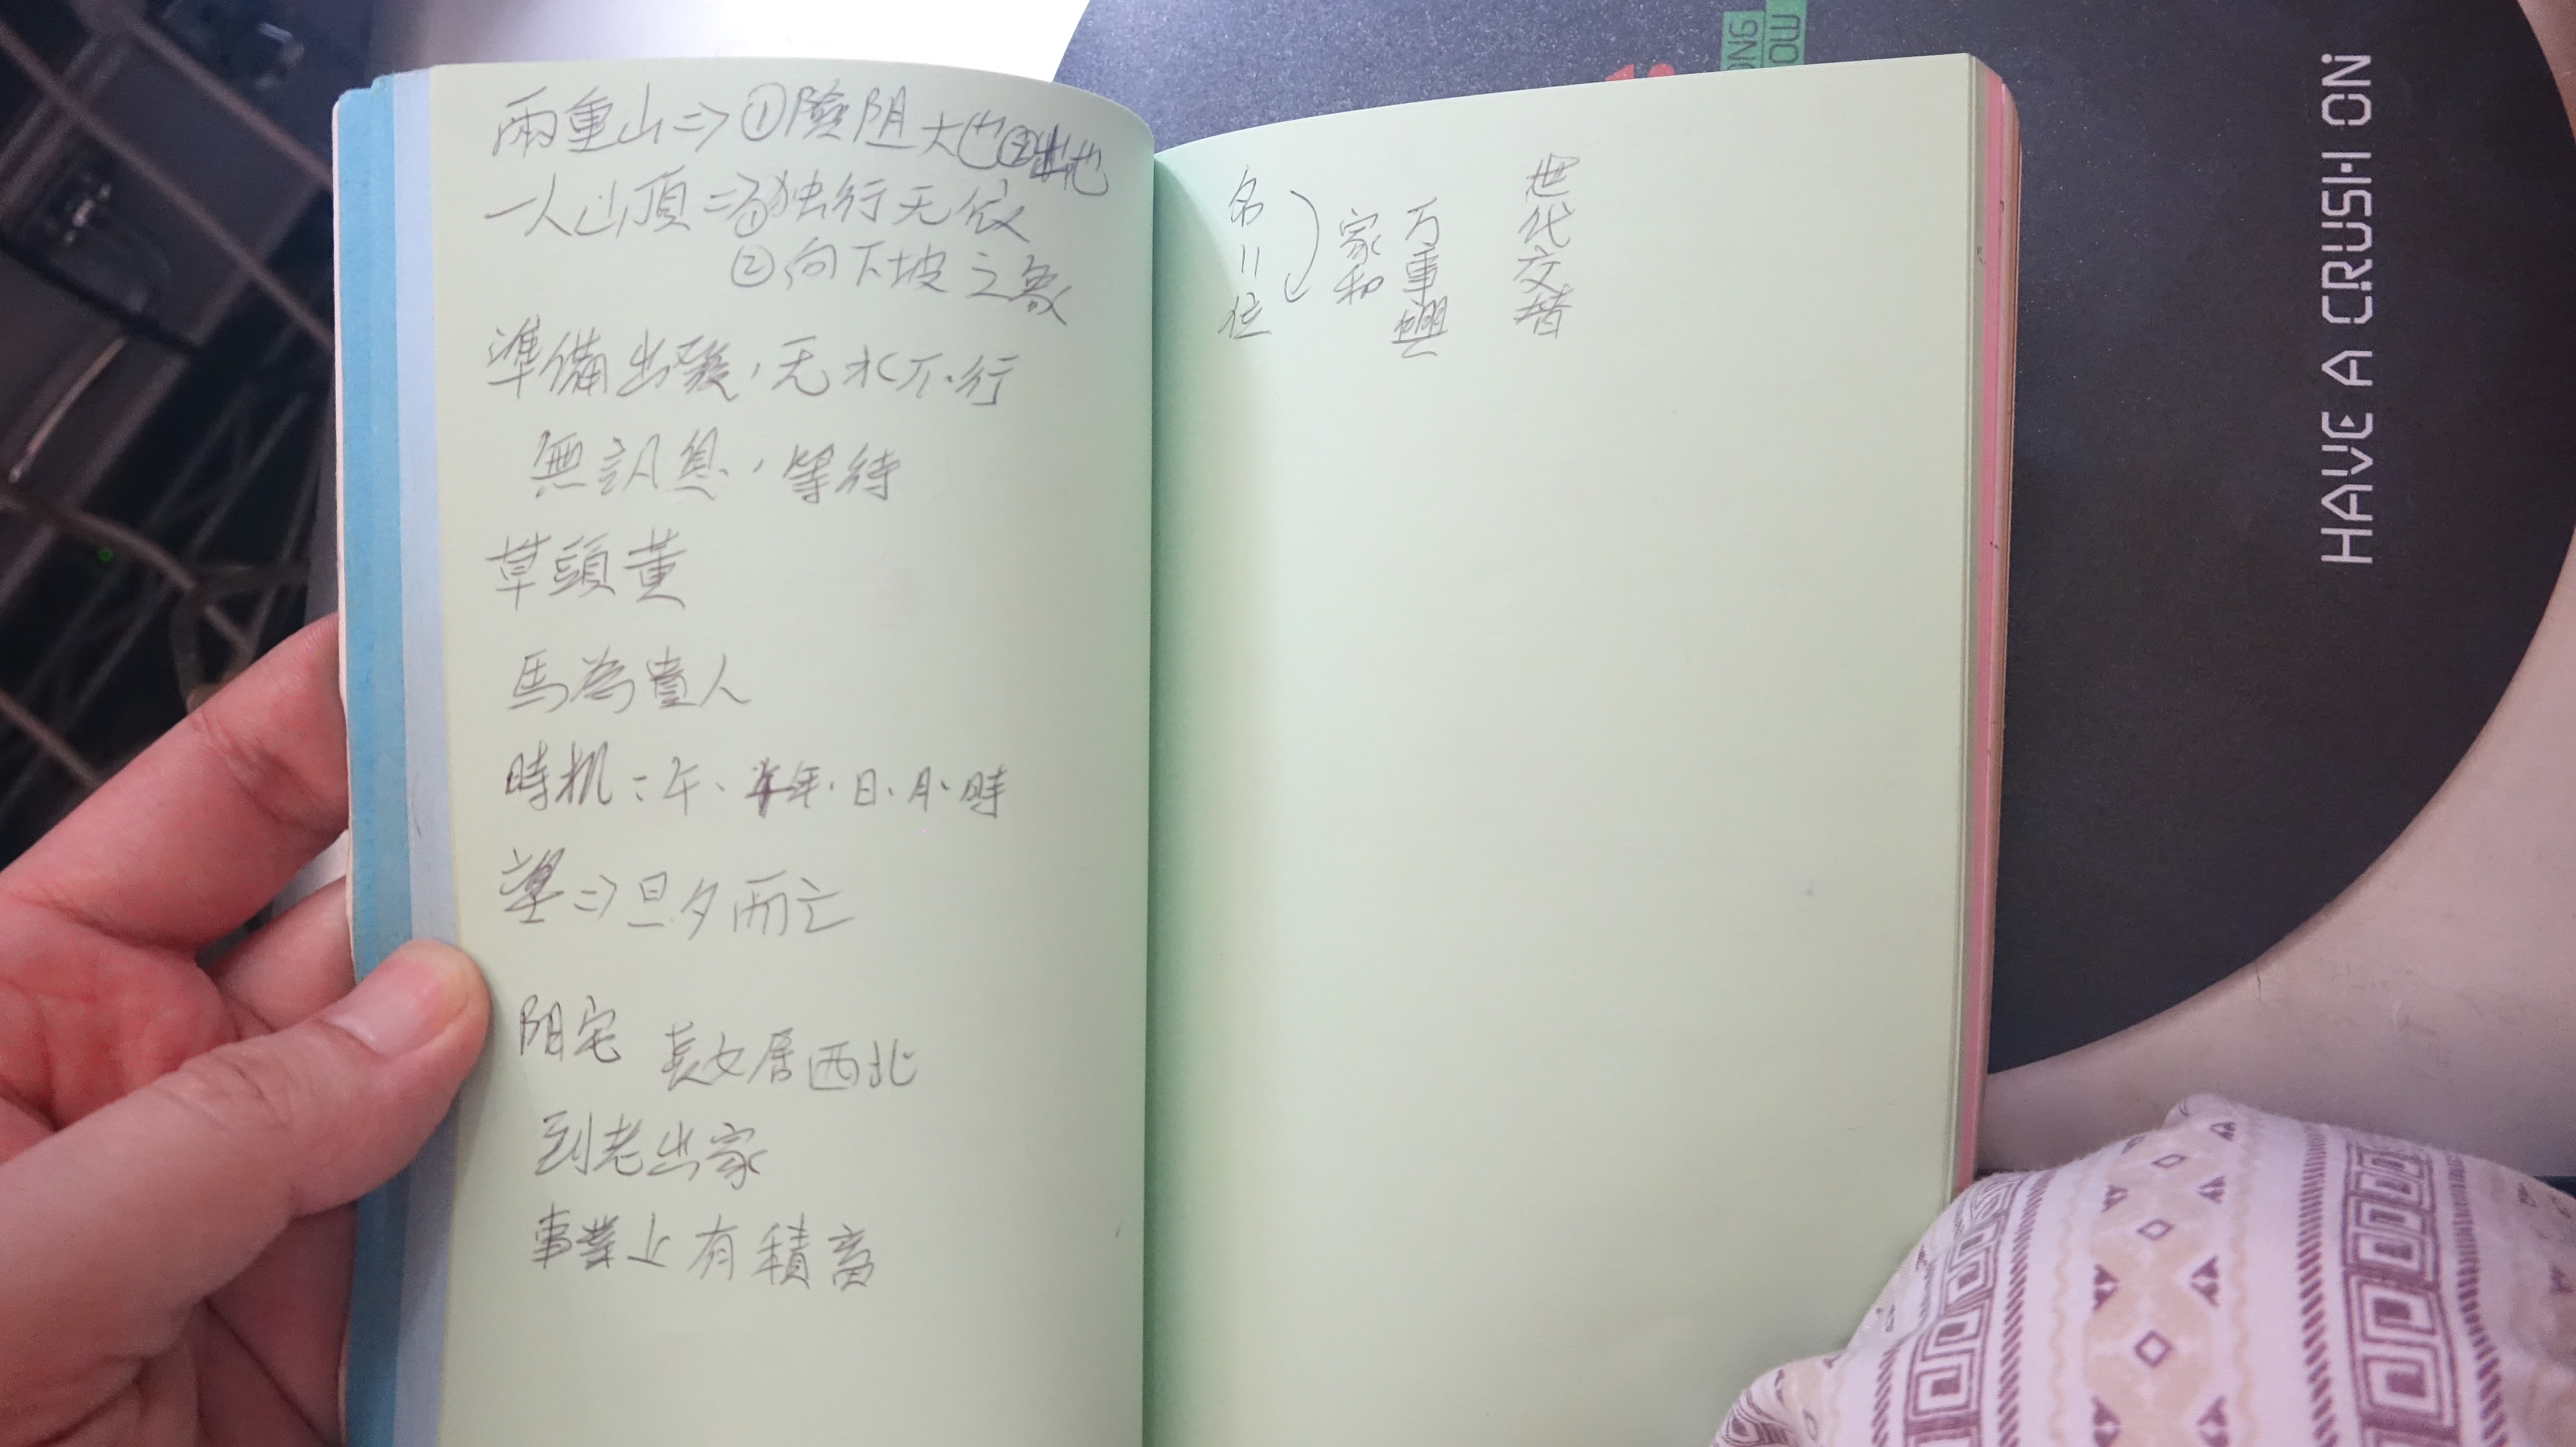 兩重山⇒①險阻大也②出也
一人山頂⇒①独行无依
②向下坡之象
準備出發，无水不行
無訊息，等待
草頭黃
馬為貴人
時机：午、年、日、月、時
⇒旦夕而亡
阴宅 長女居西北
到老出家
事業上有積畜
世代交替
万事興
家和
名=位
HAVE A CRUSH ON
ONG
OW